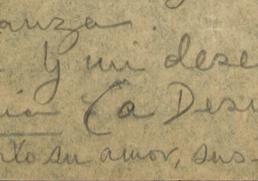 anza.
Y mi dese
(a Des
su amor, sus